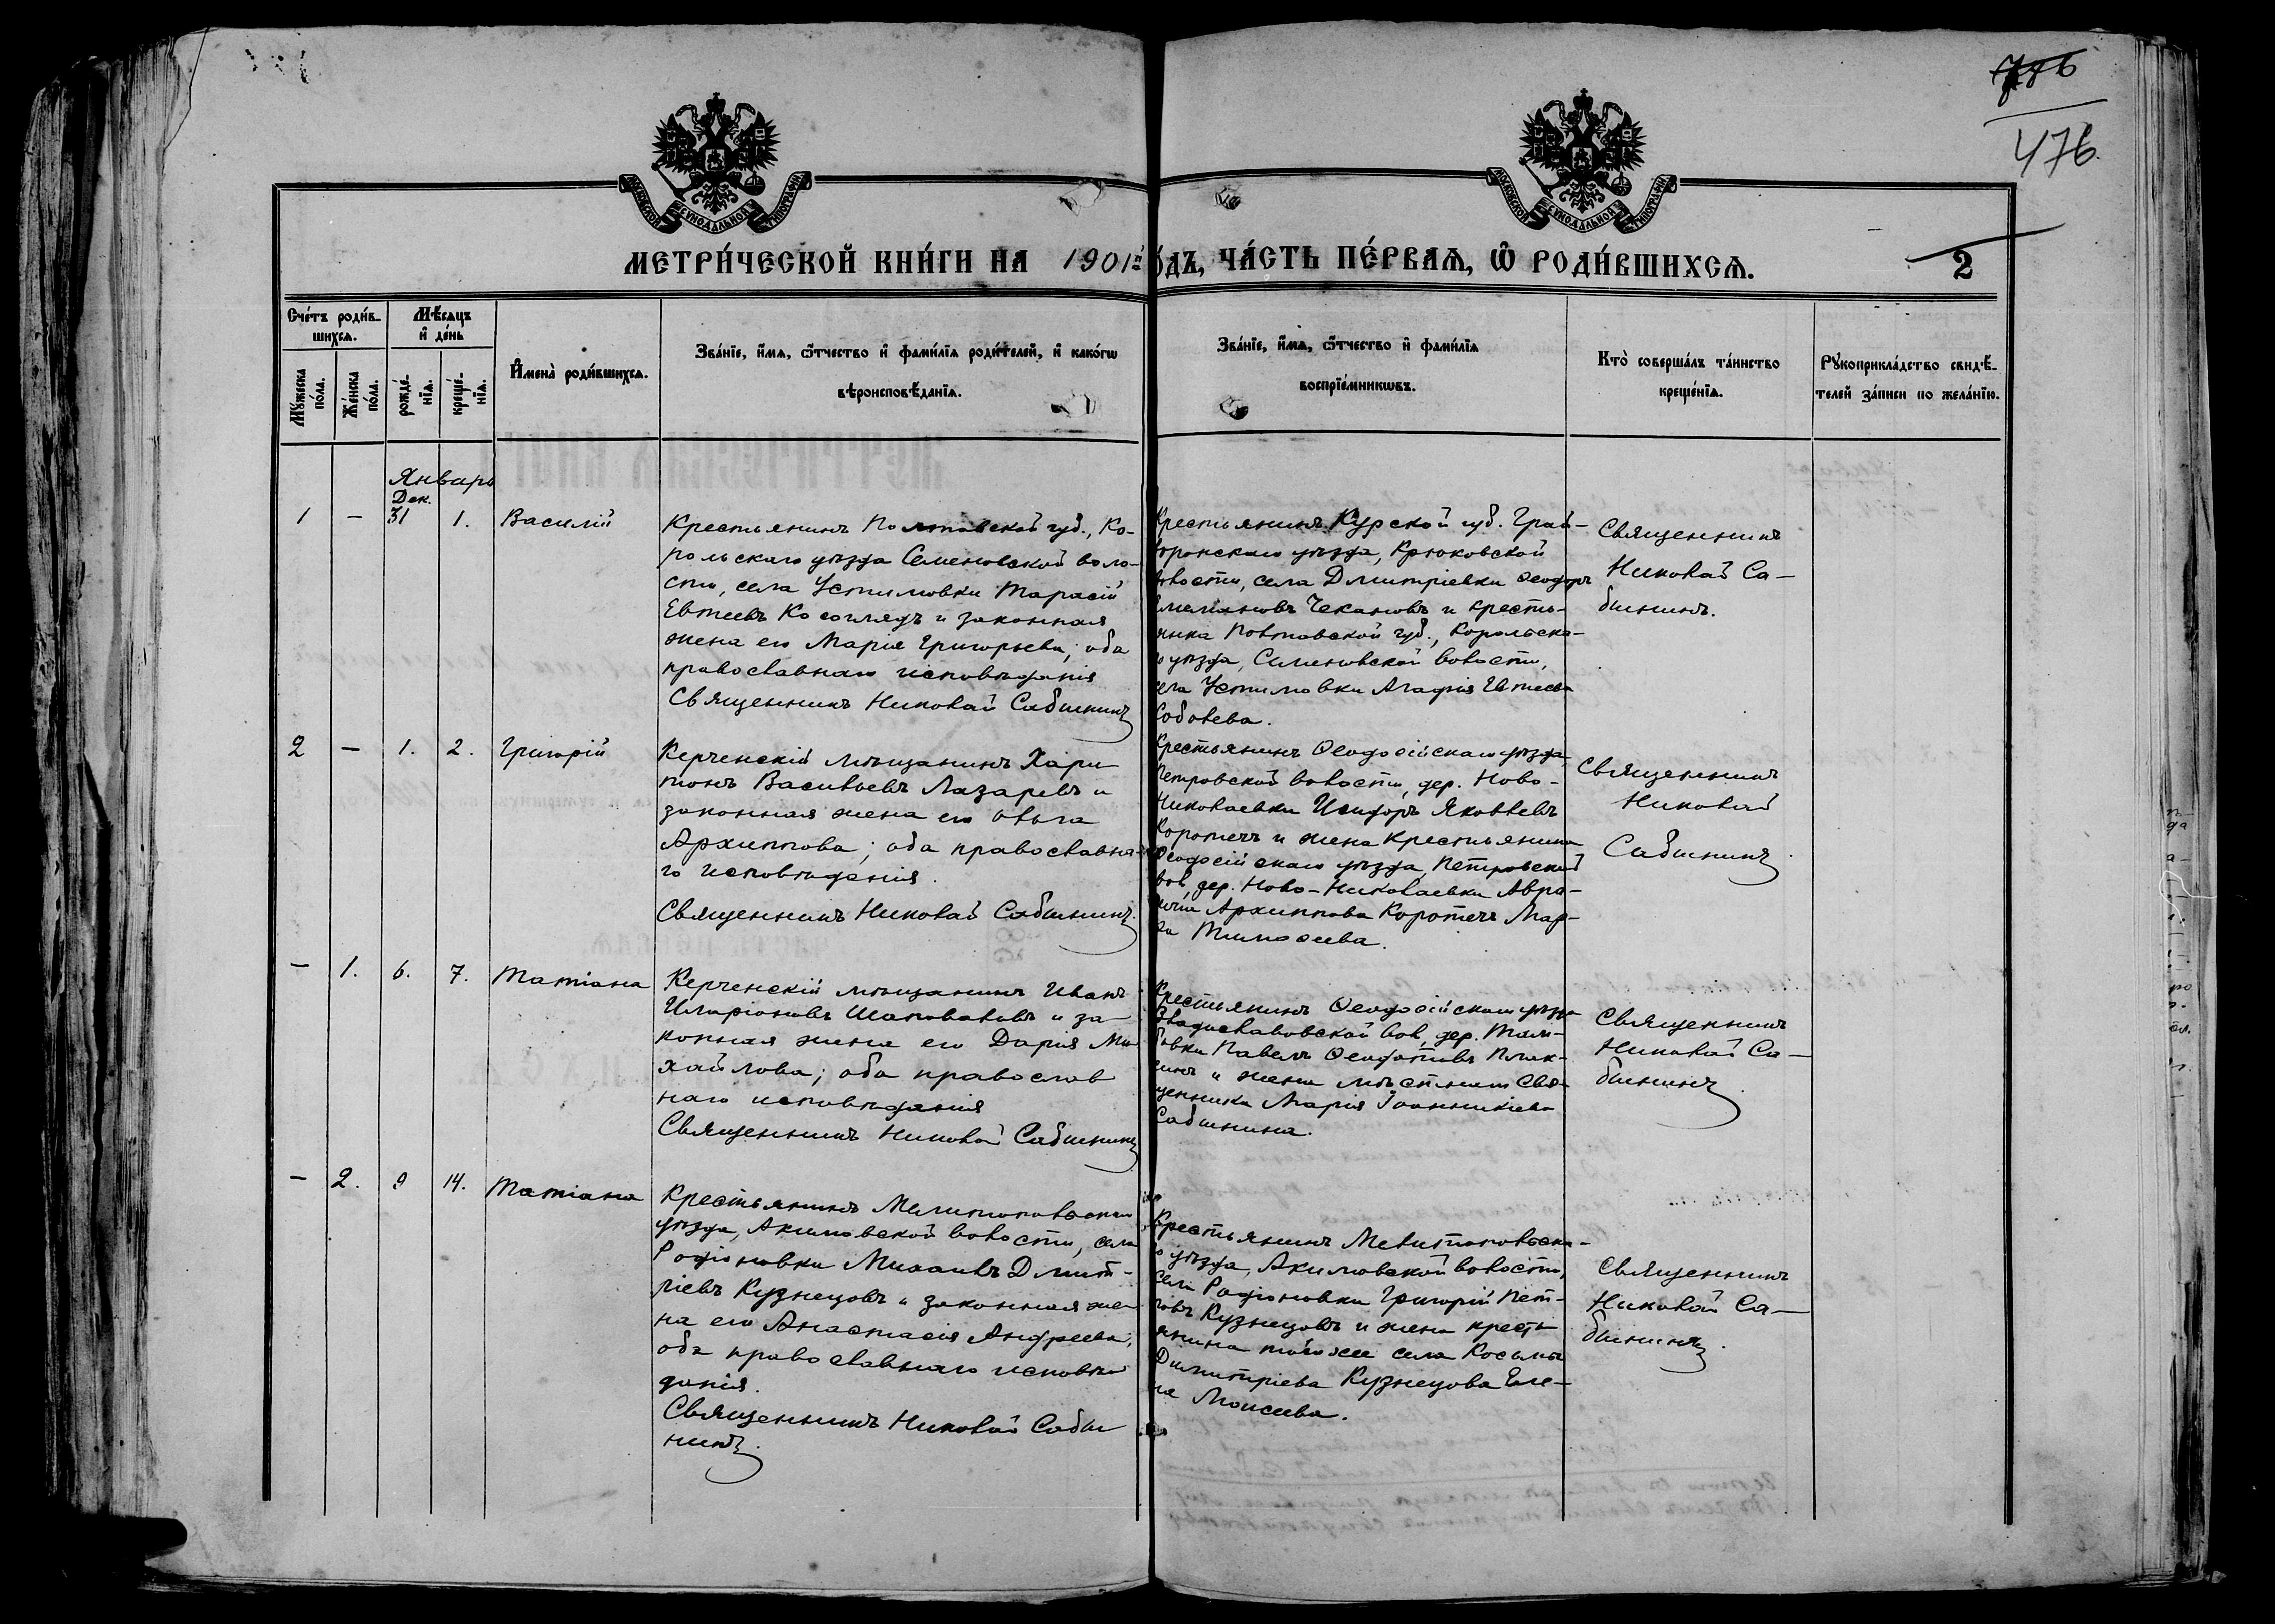 476
МОСКОВСКОЙ СΥНОДАЛЬНОЙ ТИПОГРАФІИ
МОСКОВСКОЙ СΥНОДАЛЬНОЙ ТИПОГРАФІИ
МЕТРИ́ЧЕСКОЙ КНИ́ГИ НА 1901й
о́дъ, ЧА́СТЬ ПЕ́РВАѦ, Ѽ РОДИ́ВШИХСѦ. 2
Сче́тъ роди́в-
шихсѧ.
Мꙋ́жеска по́ла.
Же́нска по́ла.
Мѣ́сѧцъ
и҆ де́нь
рожде́-нїѧ.
креще́-нїѧ.
И҆мена̀ роди́вшихсѧ.
Зва́нїе, и҆́мѧ, ѻ҆́тчество и҆ фами́лїѧ роди́телей, и҆ како́гѡ
вѣроисповѣ́данїѧ.
Зва́нїе, и҆́мѧ, ѻ҆́тчество и҆ фами́лїѧ
воспрїе́мникѡвъ.
Кто̀ соверша́лъ та́инство
креще́нїѧ.
Рꙋкоприкла́дство свидѣ́-
телей за́писи по жела́нїю.
Январь
Дек.
1 — 31 1. Василій
Крестьянинъ Полтавской губ., Ко-
рольскаго уѣзда Семеновской воло-
сти, села Устимовки Тарасій
Евтеевъ Косоглядъ и законная
жена его Марія Григорьева; оба
православнаго исповѣданія
Священникъ Николай Сабининъ
Крестьянинъ Курской губ. Грай-
воронскаго уѣзда, Крюковской
волости, села Дмитріевки Ѳеодоръ
Емельяновъ Чекановъ и кресть-
янка Полтавской губ., Корольска-
го уѣзда, Семеновской волости,
села Устимовки Агафія Евтеева
Соболева.
Священникъ
Николай Са-
бининъ.
2 — 1. 2. Григорій
Керченскій мѣщанинъ Хари
тонъ Васильевъ Лазаревъ и
законная жена его Ольга
Архиппова; оба православна-
го исповѣданія.
Священникъ Николай Сабининъ.
Крестьянинъ Ѳеодосійскаго уѣзда,
Петровской волости, дер. Ново-
Николаевки Исидоръ Яковлевъ
Коротечъ и жена крестьянина
Ѳеодосійскаго уѣзда, Петровской
вол., дер. Ново-Николаевки Авра-
Архиппова Коротечъ Мар-
Тимоѳеева.
Священникъ
Николай
Сабининъ.
— 1. 6. 7. Татіана
Керченскій мѣщанинъ Иванъ
Иларіоновъ Шаповаловъ и за
конная жена его Дарія Ми
хайлова; оба православ
наго исповѣданія
Священникъ Николай Сабининъ
Крестьянинъ Ѳеодосійскаго уѣзда
Владиславовской вол., дер. Там-
бовки Павелъ Ѳеодотовъ
и жена мѣстнаго Свя-
щенника Марія Іоанникіева
Сабинина.
Священникъ
Николай Са-
бининъ.
— 2. 9 14. Татіана
Крестьянинъ Мелитопольскаго
уѣзда, Акимовской волости, села
Родіоновки Михаилъ Дмит-
ріевъ Кузнецовъ и законная же-
на его Анастасія Андреева;
оба православнаго исповѣ
данія.
Священникъ Николай Саби
нинъ.
Крестьянинъ Мелитопольска-
го уѣзда, Акимовской волости,
села Родіоновки Григорій Пет-
ровъ Кузнецовъ и жена кресть
янина того же села Косьмы
Димитріева Кузнецова Еле-
на Моисеева.
Священникъ
Николай Са-
бининъ.